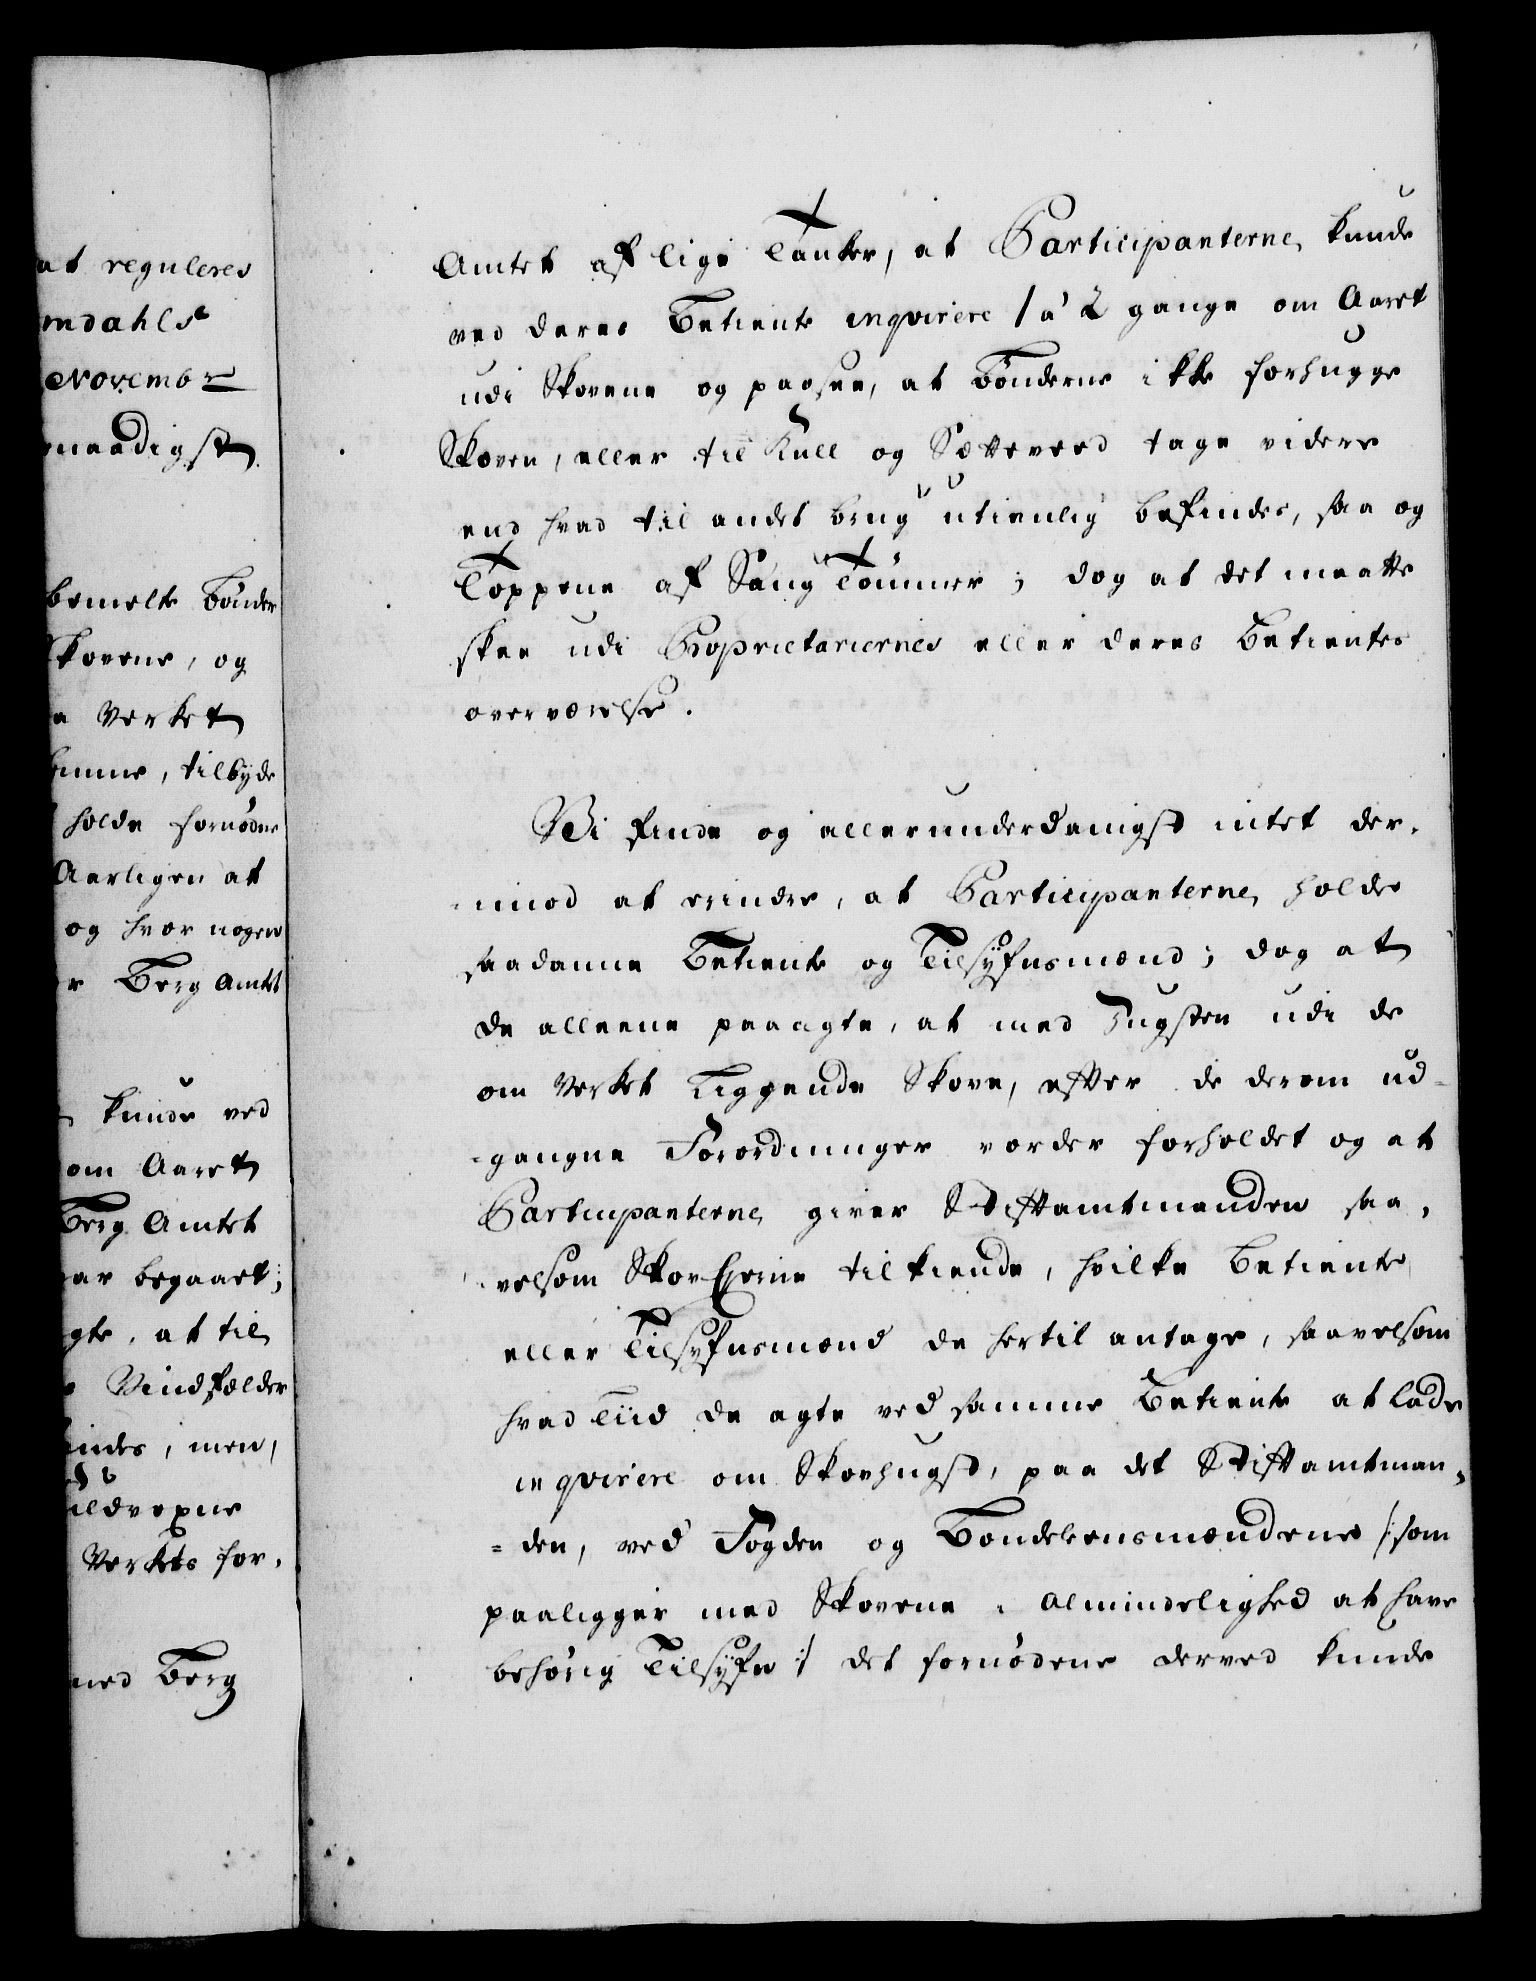 at reguleres
mdahls
Novembr
naadigst
bemelte Bønder
Skovene, og
Verket
tilbyde
holde fornødne
Aarligen at
og hvor nogen
r Berg Amtet
kunde ved
om Aaret
Berg Amtet
ar begaaet;
gte, at til
Vindfælder
indes, men,
ildvoxne
Verkets for-
med Berg
Amtet af lige Tanker, at Participanterne kunde
ved deres Betiente inqvirere 1 à 2 gange om Aaret
udi Skovene og paasee, at Bønderne ikke forhugge
Skoven, eller til Kull og Sætteveed tage videre
end hvad til andet brug utienlig befindes, saa og
Toppene af Saug Tømmer; dog at det maatte
skee udi Proprietariernes eller deres Betientes
overværelse.
Vi finde og allerunderdanigst intet der-
imod at erindre, at Participanterne holder
saadanne Betiente og Tilsyfnsmænd; dog at
de alleene paaagte, at med Hugsten udi de
om Verket Liggende Skove, efter de derom ud-
-gangne Forordninger vorder forholdet og at
Participanterne giver Stiftamtmanden saa-
velsom Skov Ejerne tilkiende, hvilke Betiente
eller Tilsyfnsmænd de hertil antage, saavelsom
hvad Tiid de agte ved samme Betiente at lade
inqvirere om Skovhugst, paa det Stiftamtman-
=den, ved Fogden og Bondeleensmændene /: som
paaligger med Skovene i Almindelighed at have
behørig Tilsyfn :/ det fornødene derved kunde